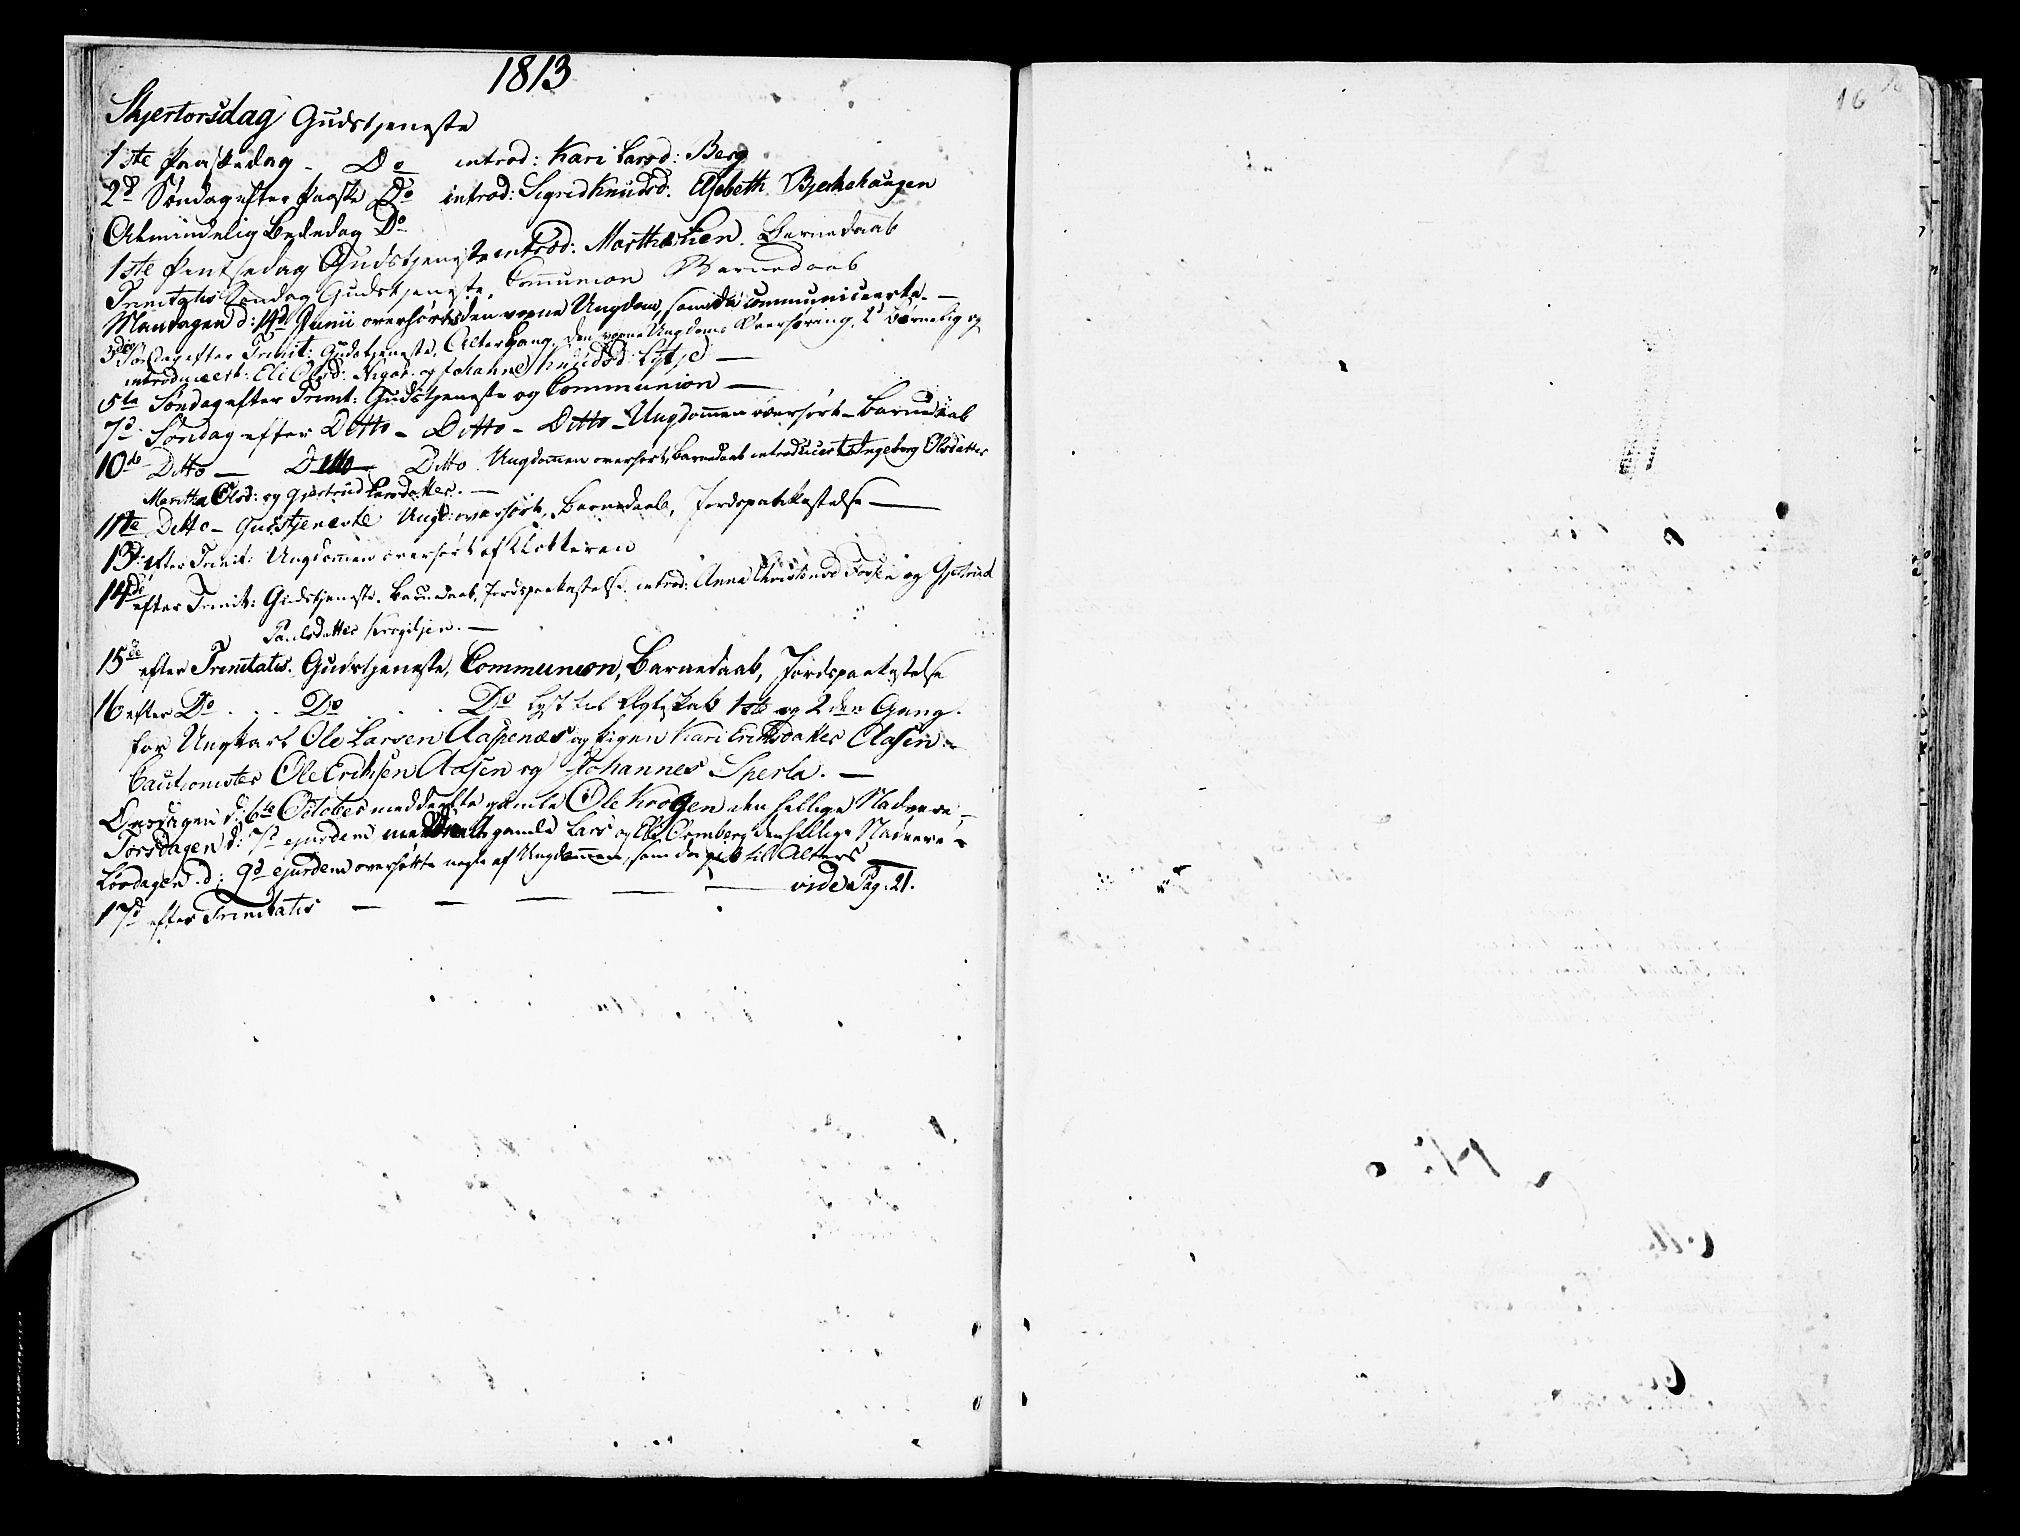 1813
Skjertorsdag Gudstjeneste
1ste Paaskedag - Do introd: Kari Larsd: Berg
2d Søndag efter Paaske Do introd: Sigrid Knudsd. Elsebeth Bjerkehaugen
Almindelig Bededag Do
1ste Pintsedag Gudstjeneste introd: Marthe Lien. Barnedaab
Trinitatis Søndag Gudstjeneste, Communion Barnedaab
Mandagen d: 14d Junii overhørtes den voxne Ungdom, som da communicerte. —
3die Søndag efter Trinit: Gudstjeneste, Altergang, den voxne Ungdoms Overhøring, og
introducert: Eli Olsd: og Johanne Knudsd:
5te Søndag efter Trinit: Gudstjeneste og Communion —
7d Søndag efter Ditto - Ditto - Ditto - Ungdommen overhørt - Barnedaab
10de Ditto — Ditto — Ditto. Ungdommen overhørt, Barnedaab introducert Ingeborg Olsdatter
Maritha Olsd: og Gjertrud Larsdatter. —
11te Ditto - Gudstjeneste Ungd: overhørt, Barnedaab, Jordspaakastelse —
13d: efter Trinit: Ungdommen overhørt af Klokkeren
14de efter Trinit: Gudstjeneste. Barnedaab, Jordspaakastelse. introd: Anna Christensd Fossen og Gjertrud
Paulsdatter —
15de efter Trinitatis. Gudstjeneste, Communion, Barnedaab, Jordspaakastelse
16 efter Do . . . Do . . . Do Lyst til Ægteskab 1ste og 2den Gang.
for Ungkarl Ole Larsen Aaspenæs og Pigen Kari Eriksdatter Aasen. -
Cautionister Ole Eriksen Aasen og Johannes Sperla. —
Onsdagen d: 6te October meddeelte gamle Ole Krogen den hellige Nadvere -
Torsdagen d: 7d ejusdem meddeelt gamle Lars og Eli Ormberg den hellige Nadvere -
Løverdagen d: 9d ejusdem overhørte nogle af Ungdommen, som da gik til Alters
17d efter Trinitatis — — — — — vide Pag. 21.
16